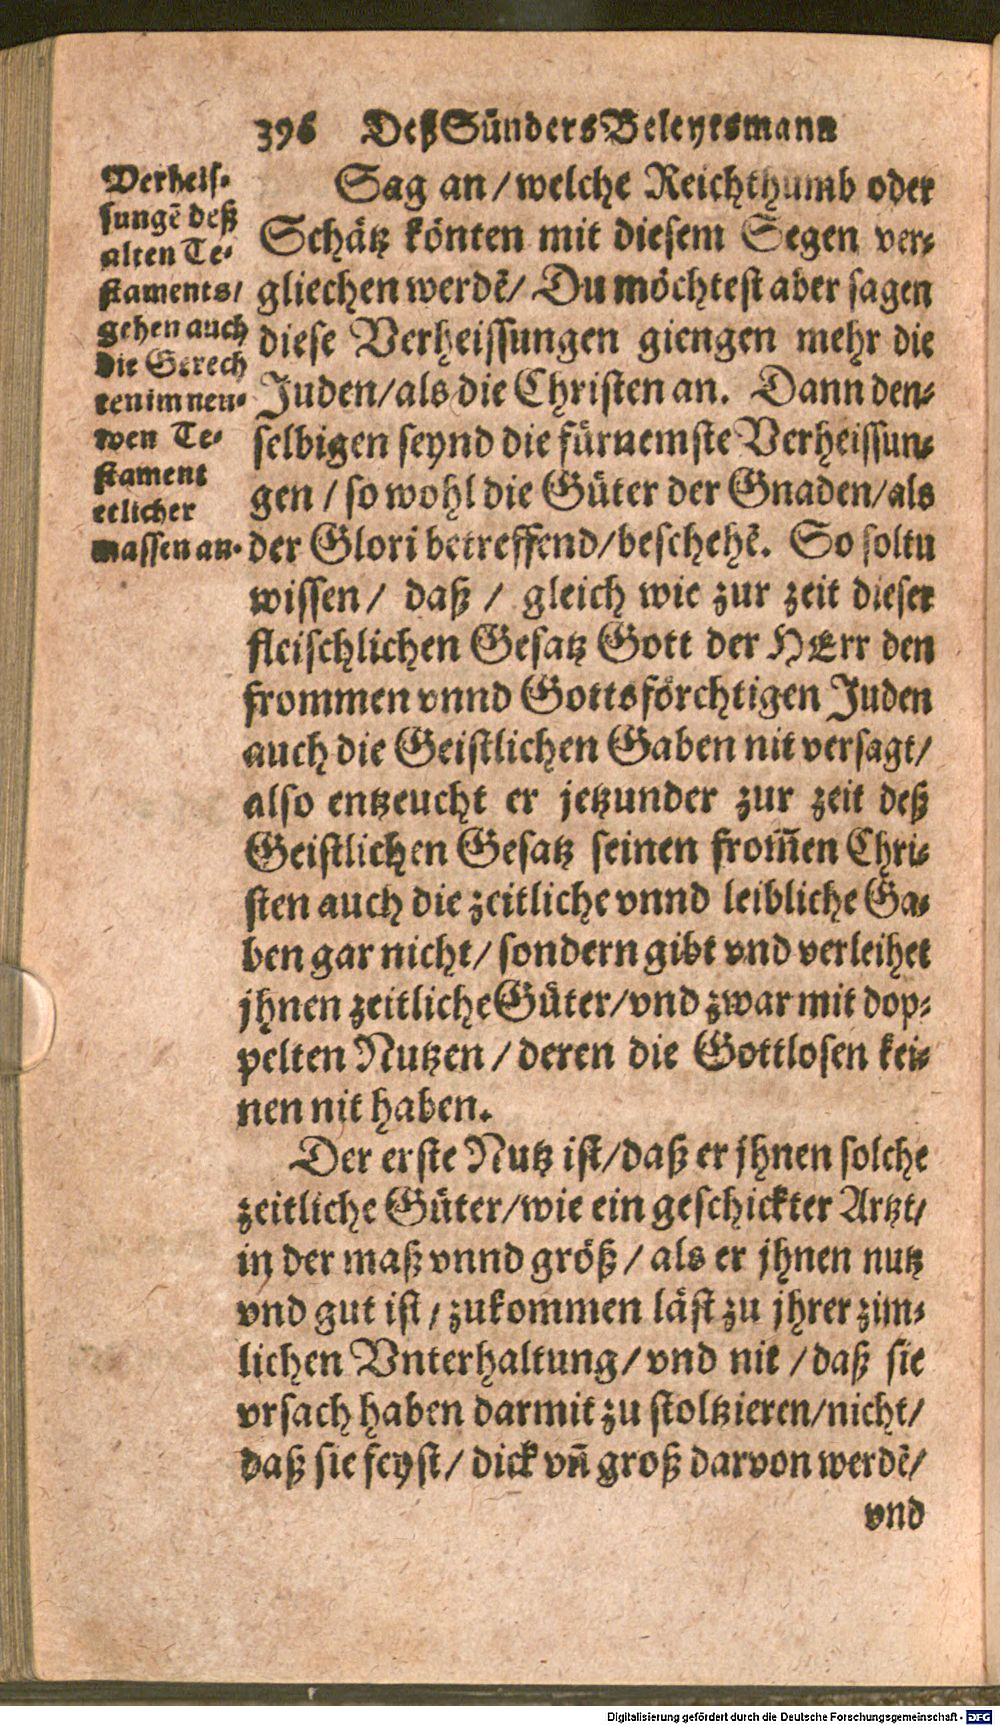 396 Deß Sünders Beleytsmann
Verheis-
sungē deß
alten Te-
staments/
gehen auch
die Gerech
ten im neu-
wen Te-
stament
etlicher
massen an.
Sag an/ welche Reichthumb oder
Schätz könten mit diesem Segen ver-
gliechen werdē/ Du möchtest aber sagen
diese Verheissungen giengen mehr die
Juden/ als die Christen an. Dann den-
selbigen seynd die fürnemste Verheissun-
gen / so wohl die Güter der Gnaden/ als
der Glori betreffend/ beschehē. So soltu
wissen/ daß / gleich wie zur zeit dieser
fleischlichen Gesatz Gott der HErr den
frommen vnnd Gottsförchtigen Juden
auch die Geistlichen Gaben nit versagt/
also entzeucht er jetzunder zur zeit deß
Geistlichen Gesatz seinen from̄en Chri-
sten auch die zeitliche vnnd leibliche Ga-
ben gar nicht/ sondern gibt vnd verleihet
jhnen zeitliche Güter/ vnd zwar mit dop-
pelten Nutzen / deren die Gottlosen kei-
nen nit haben.
Der erste Nutz ist/ daß er jhnen solche
zeitliche Güter/ wie ein geschickter Artzt/
in der maß vnnd größ / als er jhnen nutz
vnd gut ist / zukommen läst zu jhrer zim-
lichen Vnterhaltung/ vnd nit / daß sie
vrsach haben darmit zu stoltzieren/ nicht/
daß sie feyst/ dick vn̄ groß darvon werdē/
vnd
Digitalisierung gefördert durch die Deutsche Forschungsgemeinschaft - DFG